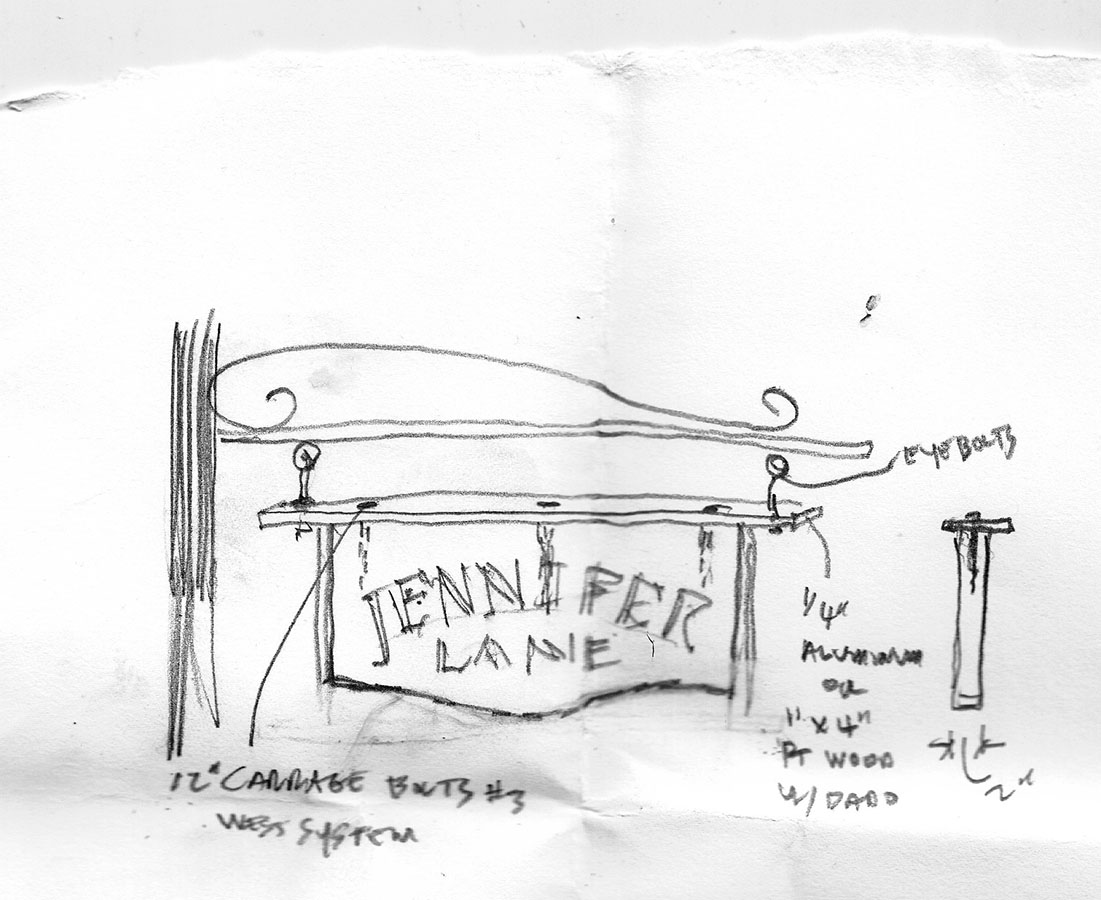 EYEBOLTS
JENNIFER
LANE
1/4"
ALUMINUM
OR
1" X 4"
PT WOOD
W/ DADO
2"
12" CARRIAGE BOLTS #3
WEST SYSTEM